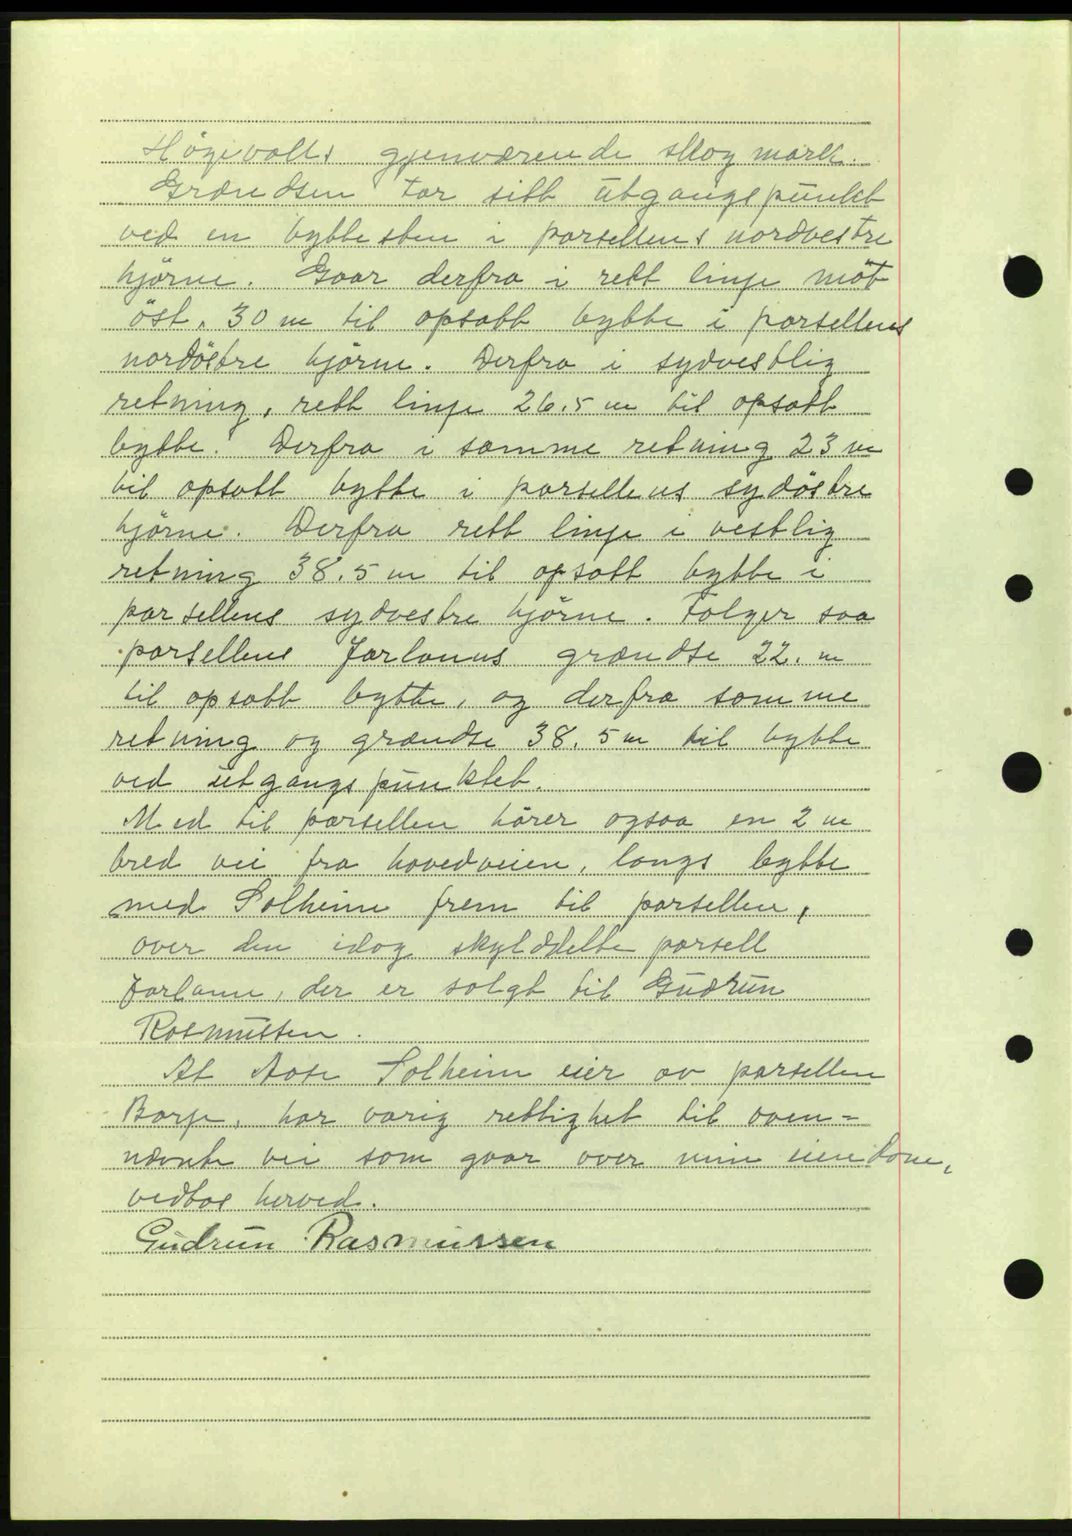 Högevolls gjenværende skog mark.
Grændsen tar sitt utgangspunkt
ved en byttesten i parsellens nordvestre
hjörne. Gaar derfra i rett linje möt
öst, 30 m til opsatt bytte i parsellens
nordöstre hjörne. Derfra i sydvestlig
retning, rett linje 26.5 m til opsatt
bytte. Derfra i samme retning 23 m
til opsatt bytte i parsellens sydöstre
hjörne. Derfra rett linje i vestlig
retning 38.5 m til opsatt bytte i
parsellens sydvestre hjörne. Følger saa
parsellens grændse 22. m
til opsatt bytte, og derfra samme
retning og grændse 38.5 m til bytte
ved utgangspunktet.
Med til parsellen hörer ogsaa en 2 m
bred vei fra hovedveien, langs bytte
med Solheim frem til parsellen,
over den idag skylddelte parsell
der er solgt til Gudrun
Rasmussen.
At Aase Solheim eier av parsellen
Borge, har varig rettighet til oven=
nævnte vei som gaar over min eiendom,
vedtas herved.
Gudrun Rasmussen